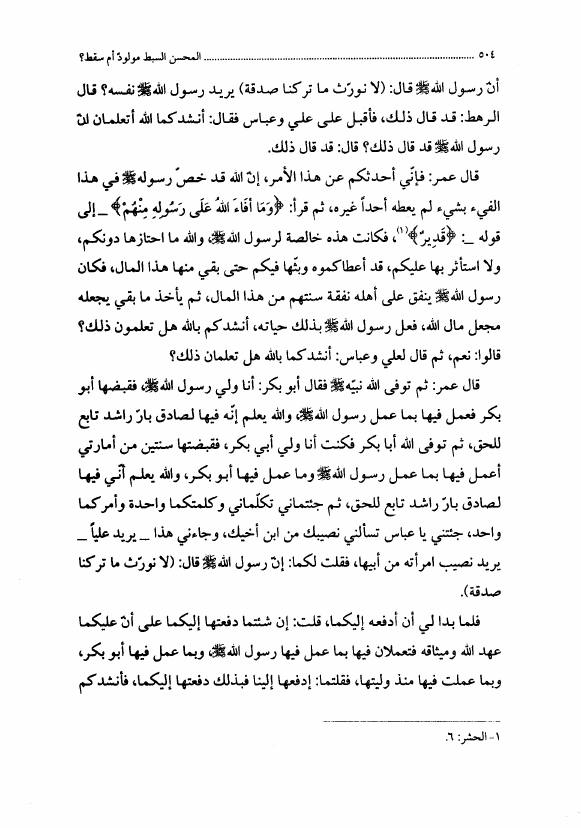 ٥٠٤ ........ المحسن السبط مولودٌ أم سقط؟
أنّ رسول الله ﷺ قال: (لا نورّث ما تركنا صدقة) يريد رسول الله ﷺ نفسه؟ قال
الرهط: قد قال ذلك، فأقبل على علي وعباس فقال: أنشدكما الله أتعلمان أنّ
رسول الله ﷺ قد قال ذلك؟ قال: قد قال ذلك.
قال عمر: فإنّي أحدثكم عن هذا الأمر، إنّ الله قد خصّ رسوله ﷺ في هذا
الفيء بشيء لم يعطه أحداً غيره، ثم قرأ: ﴿وَمَا أَفَاءَ اللهُ عَلَى رَسُولِهِ مِنْهُمْ﴾ _ إلى
قوله _: ﴿قَدِيرٌ﴾(١)، فكانت هذه خالصة لرسول الله ﷺ، والله ما احتازها دونكم،
ولا استأثر بها عليكم، قد أعطاكموه وبثّها فيكم حتى بقي منها هذا المال، فكان
رسول الله ﷺ ينفق على أهله نفقة سنتهم من هذا المال، ثم يأخذ ما بقي يجعله
مجعل مال الله، فعل رسول الله ﷺ بذلك حياته، أنشدكم بالله هل تعلمون ذلك؟
قالوا: نعم، ثم قال لعلي وعباس: أنشدكما بالله هل تعلمان ذلك؟
قال عمر: ثم توفى الله نبيّه ﷺ فقال أبو بكر: أنا ولي رسول الله ﷺ، فقبضها أبو
بكر فعمل فيها بما عمل رسول الله ﷺ، والله يعلم إنّه فيها لصادق بارّ راشد تابع
للحق، ثم توفى الله أبا بكر فكنت أنا ولي أبي بكر، فقبضتها سنتين من أمارتي
أعمل فيها بما عمل رسول الله ﷺ وما عمل فيها أبو بكر، والله يعلم أنّي فيها
لصادق بارّ راشد تابع للحق، ثم جئتماني تكلّماني وكلمتكما واحدة وأمركما
واحد، جئتني يا عباس تسألني نصيبك من ابن أخيك، وجاءني هذا _ يريد علياً _
يريد نصيب امرأته من أبيها، فقلت لكما: إنّ رسول الله ﷺ قال: (لا نورّث ما تركنا
صدقة).
فلما بدا لي أن أدفعه إليكما، قلت: إن شئتما دفعتها إليكما على أنّ عليكما
عهد الله وميثاقه فتعملان فيها بما عمل فيها رسول الله ﷺ، وبما عمل فيها أبو بكر،
وبما عملت فيها منذ وليتها، فقلتما: إدفعها إلينا فبذلك دفعتها إليكما، فأنشدكم
١- الحشر: ٦.